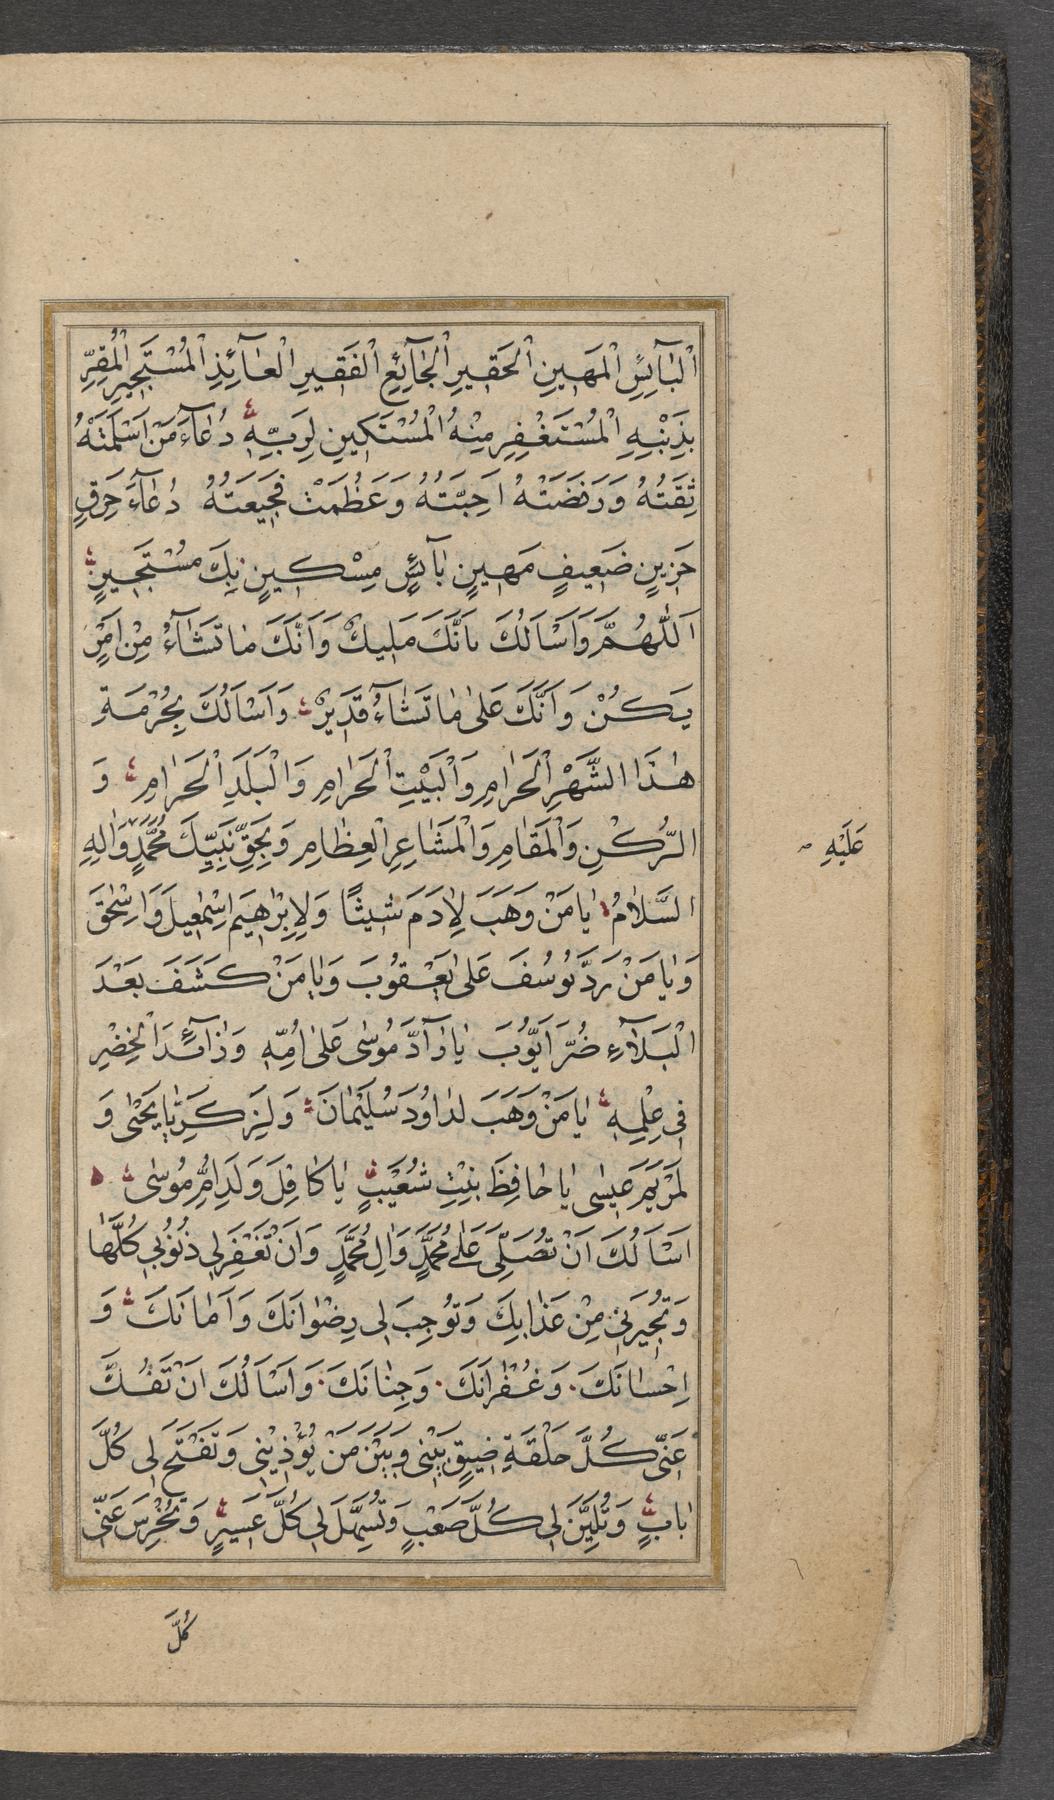 اَلْبٰآئِسِ الْمَهِينِ الْحَقِيرِ الْجٰآئِعِ الْفَقِيرِ الْعٰآئِذِ الْمُسْتَجِيرِ الْمُقِرِّ
بِذَنْبِهِ الْمُسْتَغْفِرِ مِنْهُ الْمُسْتَكِينِ لِرَبِّهِ دُعٰآءَ مَنْ اَسْلَمَتْهُ
ثِقَتُهُ وَرَفَضَتْهُ اَحِبَّتُهُ وَعَظُمَتْ فَجِيعَتُهُ دُعٰآءَ حَرِقٍ
حَزِينٍ ضَعِيفٍ مَهِينٍ بٰآئِسٍ مِسْكِينٍ بِكَ مُسْتَجِيرٍ
اَللّٰهُمَّ وَاَسْاَلُكَ بِاَنَّكَ مَلِيكٌ وَاَنَّكَ مٰا تَشٰآءُ مِنْ اَمْرٍ
يَكُنْ وَاَنَّكَ عَلىٰ مٰا تَشٰآءُ قَدِيرٌ وَاَسْاَلُكَ بِحُرْمَةِ
هٰذَا الشَّهْرِ الْحَرٰامِ وَالْبَيْتِ الْحَرٰامِ وَالْبَلَدِ الْحَرٰامِ وَ
الرُّكْنِ وَالْمَقٰامِ وَالْمَشٰاعِرِ الْعِظٰامِ وَبِحَقِّ نَبِيِّكَ مُحَمَّدٍ وَاٰلِهِ
عَلَيْهِ
السَّلٰامُ يٰا مَنْ وَهَبَ لِاٰدَمَ شِيثًا وَلِاِبْرٰهِيمَ اِسْمٰعِيلَ وَاِسْحٰقَ
وَيٰا مَنْ رَدَّ يُوسُفَ عَلىٰ يَعْقُوبَ وَيٰا مَنْ كَشَفَ بَعْدَ
الْبَلٰآءِ ضُرَّ اَيُّوبَ يٰا رٰآدَّ مُوسٰى عَلىٰ اُمِّهِ وَزٰآئِدَ الْخِضْرِ
فِى عِلْمِهِ يٰا مَنْ وَهَبَ لِدٰاوُدَ سُلَيْمٰانَ وَلِزَكَرِيّٰا يَحْيٰى وَ
لِمَرْيَمَ عِيسٰى يٰا حٰافِظَ بِنْتِ شُعَيْبٍ يٰا كٰافِلَ وَلَدِ اُمِّ مُوسٰى
اَسْاَلُكَ اَنْ تُصَلِّىَ عَلىٰ مُحَمَّدٍ وَاٰلِ مُحَمَّدٍ وَاَنْ تَغْفِرَ لِى ذُنُوبِى كُلَّهٰا
وَتُجِيرَنِى مِنْ عَذٰابِكَ وَتُوجِبَ لِى رِضْوٰانَكَ وَاَمٰانَكَ وَ
اِحْسٰانَكَ وَغُفْرٰانَكَ وَجِنٰانَكَ وَاَسْاَلُكَ اَنْ تَفُكَّ
عَنِّى كُلَّ حَلْقَةِ ضِيقٍ بَيْنِى وَبَيْنَ مَنْ يُؤْذِيْنِى وَتَفْتَحَ لِى كُلَّ
بٰابٍ وَتُلَيِّنَ لِى كُلَّ صَعْبٍ وَتُسَهِّلَ لِى كُلَّ عَسِيرٍ وَتُخْرِسَ عَنِّى
كُلَّ